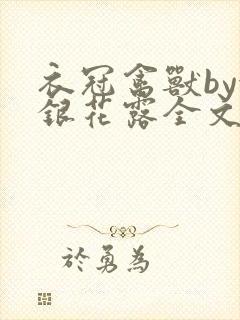 衣冠禽獸by
銀花露全文
於勇為